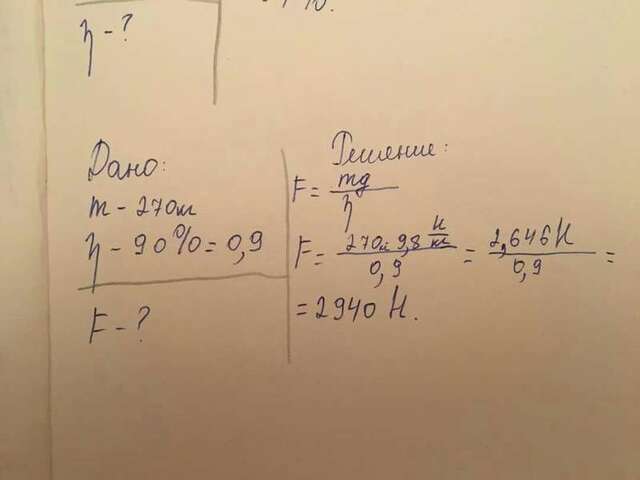 η - ?
Дано:
m - 270кг
η - 90% = 0,9
F - ?
Решение:
F = mg / η
F = 270кг 9,8 Н/кг / 0,9 = 2,646Н / 0,9 =
= 2940 Н.